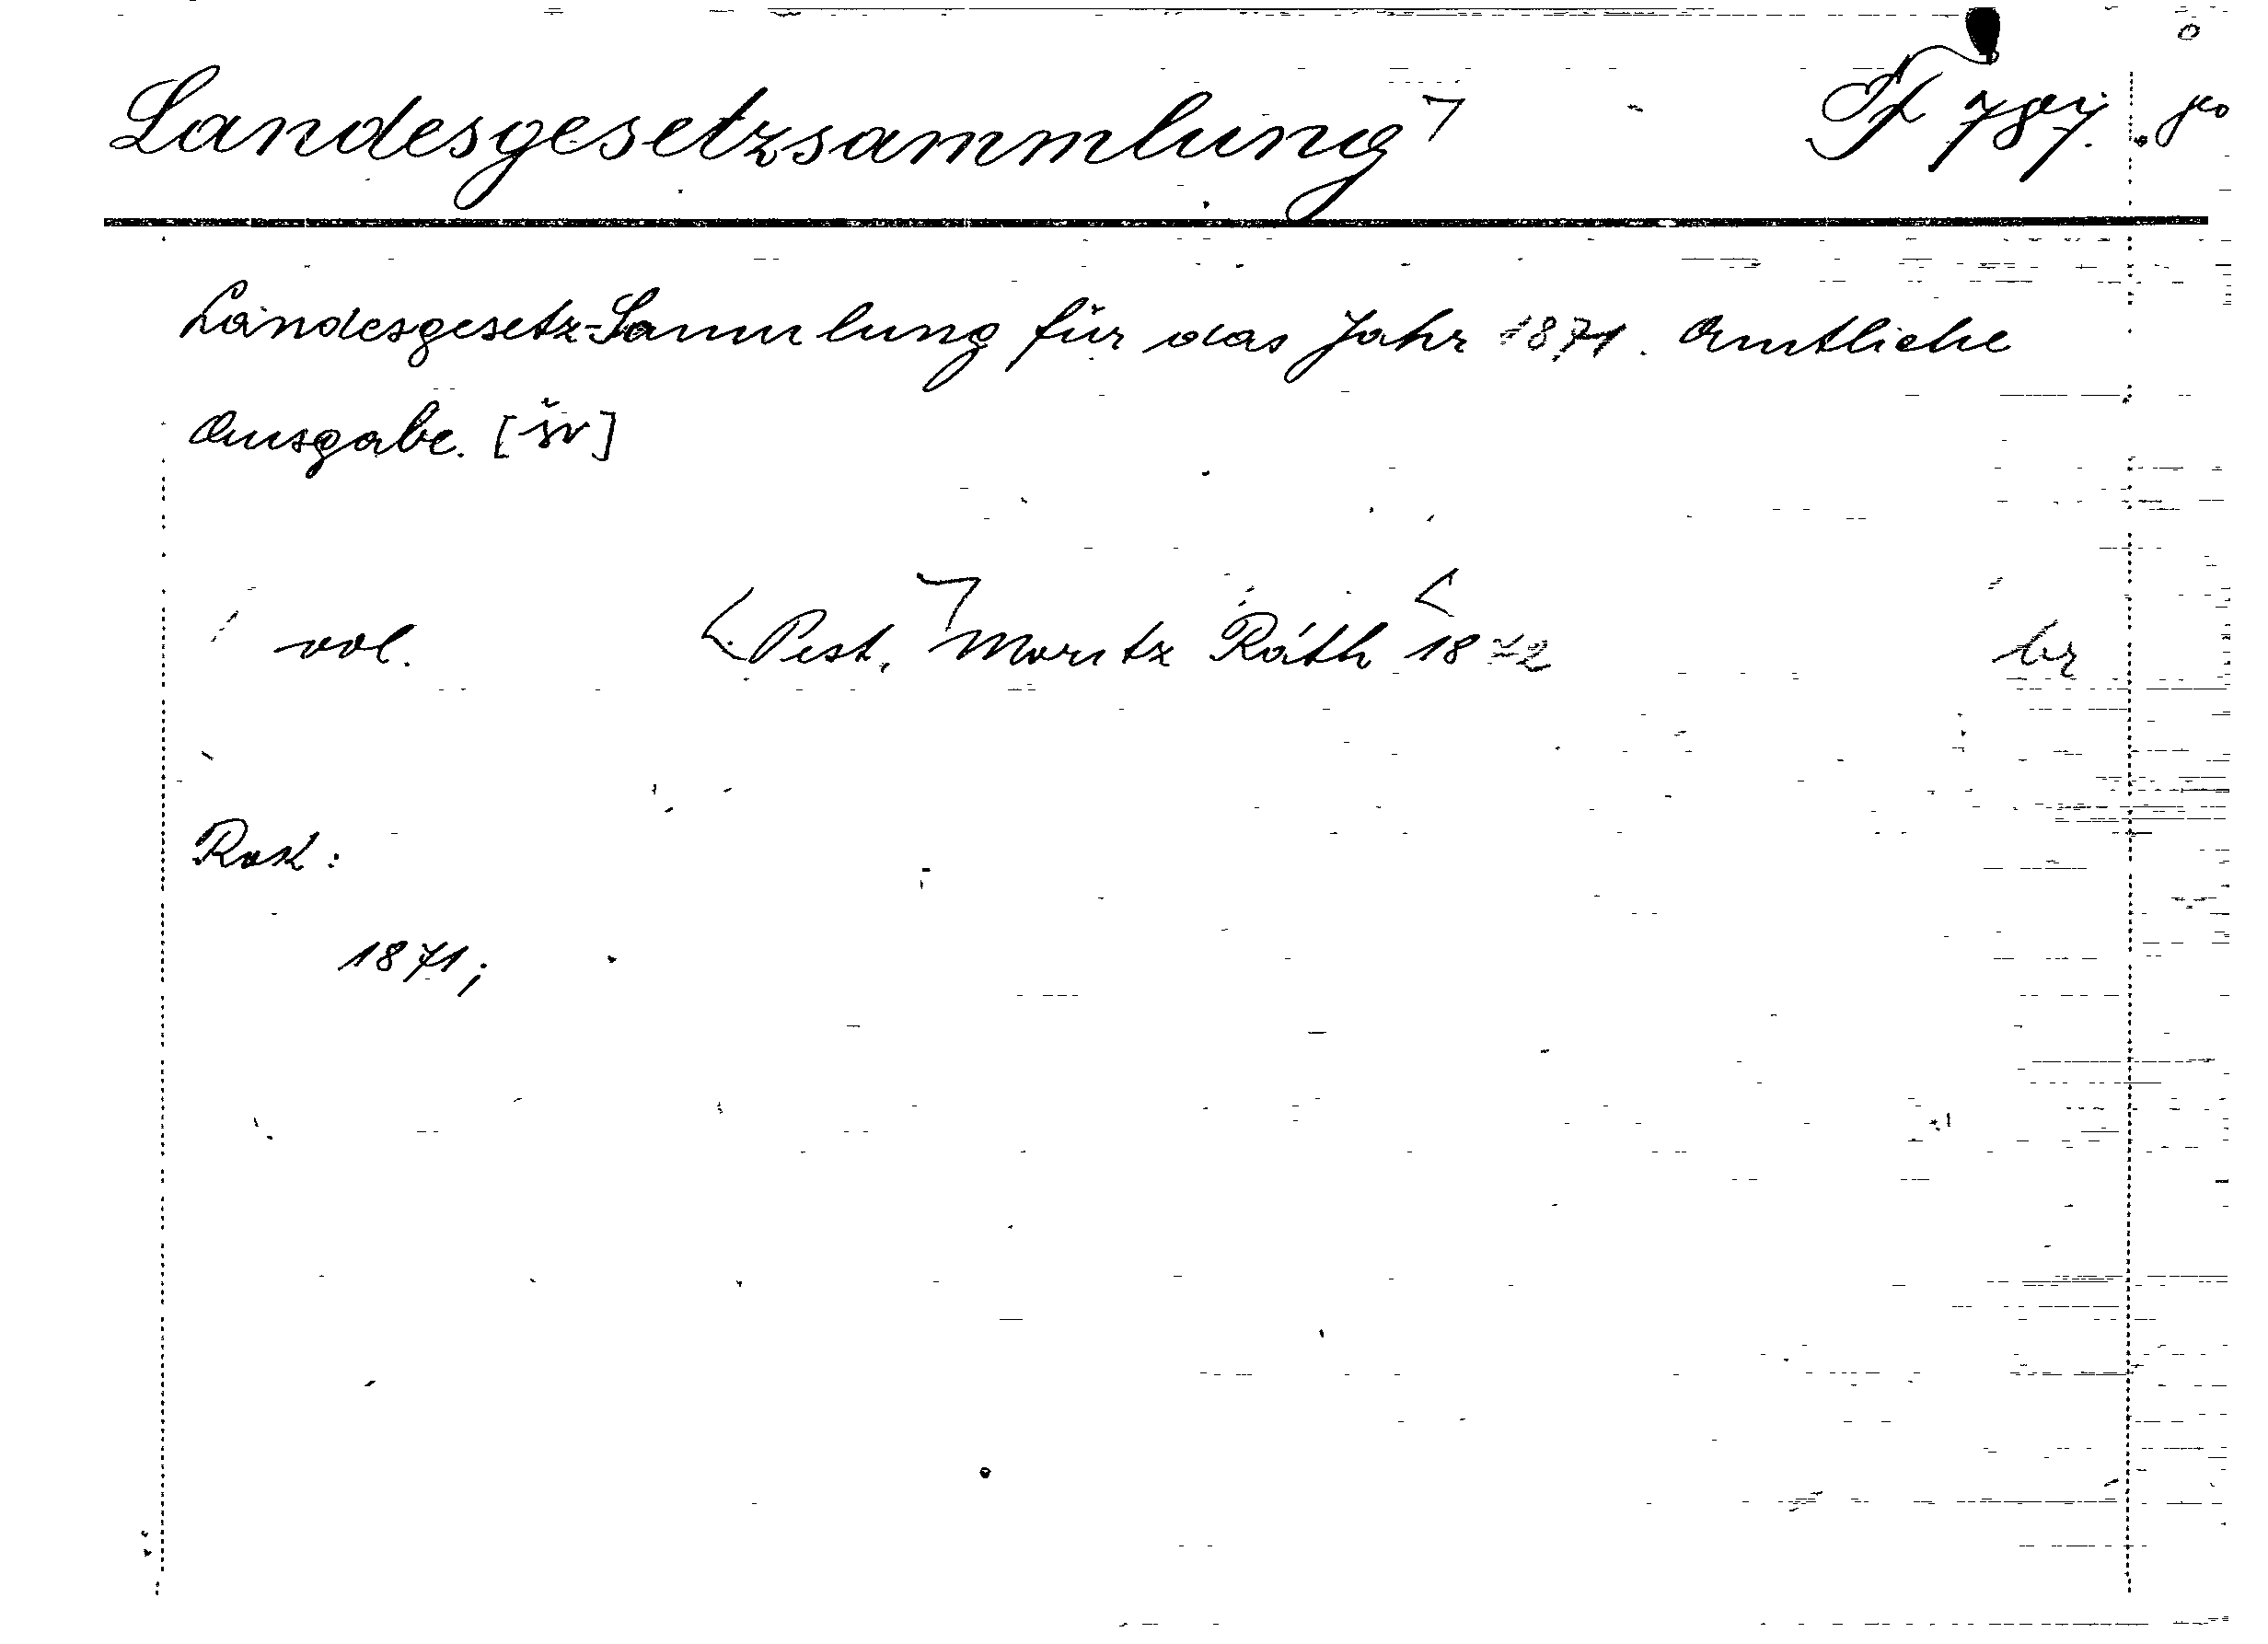 Landesgesetzsammlung Pf 787.
Landesgesetz-Sammlung für das Jahr 1871. Amtliche
Ausgabe. [šv]
vol. Pest, Moritz Ráth 1872 br
Rok:
1871;